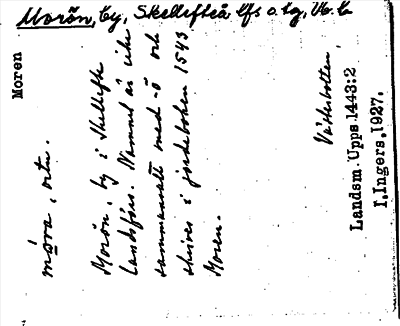 Morön, by, Skellefteå lfs o. tg, Vb. l.
Moren
möra, ortn.
Morön, by i Skellefte
landsförs. Namnet är icke
sammansatt med -ö och
skrives i jordeboken 1543
Moren.
Västerbotten,
Landsm. Upps. 1443:2
I. Ingers, 1927.